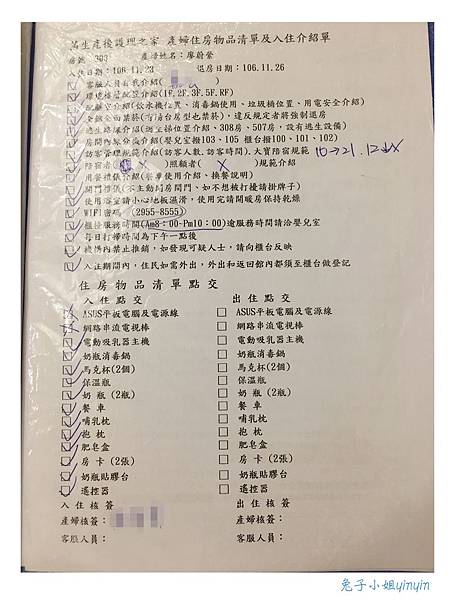 萬生產後護理之家 產婦住房物品清單及入住介紹單
房號 303 產婦姓名：廖蔚縈
入住日期：106.11.23 退房日期：106.11.26
客服人員自我介紹(
環境樓層配置介紹(1F.2F.3F.5F.RF)
配膳室介紹(飲水機位置、消毒鍋使用、垃圾桶位置、用電安全介紹)
全館全面禁菸(有陽台房型也禁菸)，違反規定者將強制退房
逃生路線介紹(逃生梯位置介紹、308房、507房，設有逃生設備)
房間內線分機介紹(嬰兒室撥103、105 櫃台撥100、101、102)
訪客管理規範介紹(訪客人數.訪客時間).大寶陪宿規範 10→21.
陪宿者( )照顧者( X )規範介紹
用餐禮儀介紹(餐車使用介紹、換餐說明)
開門禮儀(不主動局房間門、如不想被打擾請掛牌子)
使用浴室請小心地板濕滑，使用完請開暖房保持乾燥
WIFI密碼 (2955-8555)
櫃檯服務時間(Am8：00-Pm10：00)逾服務時間請洽嬰兒室
每日打掃時間為下午一點後
機構內禁止推銷，如發現可疑人士，請向櫃台反映
入住期間內，住民如需外出，外出和返回館內都須至櫃台做登記
住房物品清單點交
入住點交 出住點交
ASUS平板電腦及電源線 □ ASUS平板電腦及電源線
網路串流電視棒 □ 網路串流電視棒
電動吸乳器主機 □ 電動吸乳器主機
奶瓶消毒鍋 □ 奶瓶消毒鍋
馬克杯(2個) □ 馬克杯(2個)
保溫瓶 □ 保溫瓶
奶瓶 (2瓶) □ 奶瓶 (2瓶)
餐車 □ 餐車
哺乳枕 □ 哺乳枕
抱枕 □ 抱枕
肥皂盒 □ 肥皂盒
房卡 (2張) □ 房卡 (2張)
奶瓶貼膠台 □ 奶瓶貼膠台
遙控器 □ 遙控器
入住核簽 出住核簽
產婦核簽： 產婦核簽：
客服人員： 客服人員：
兔子小姐yinyin